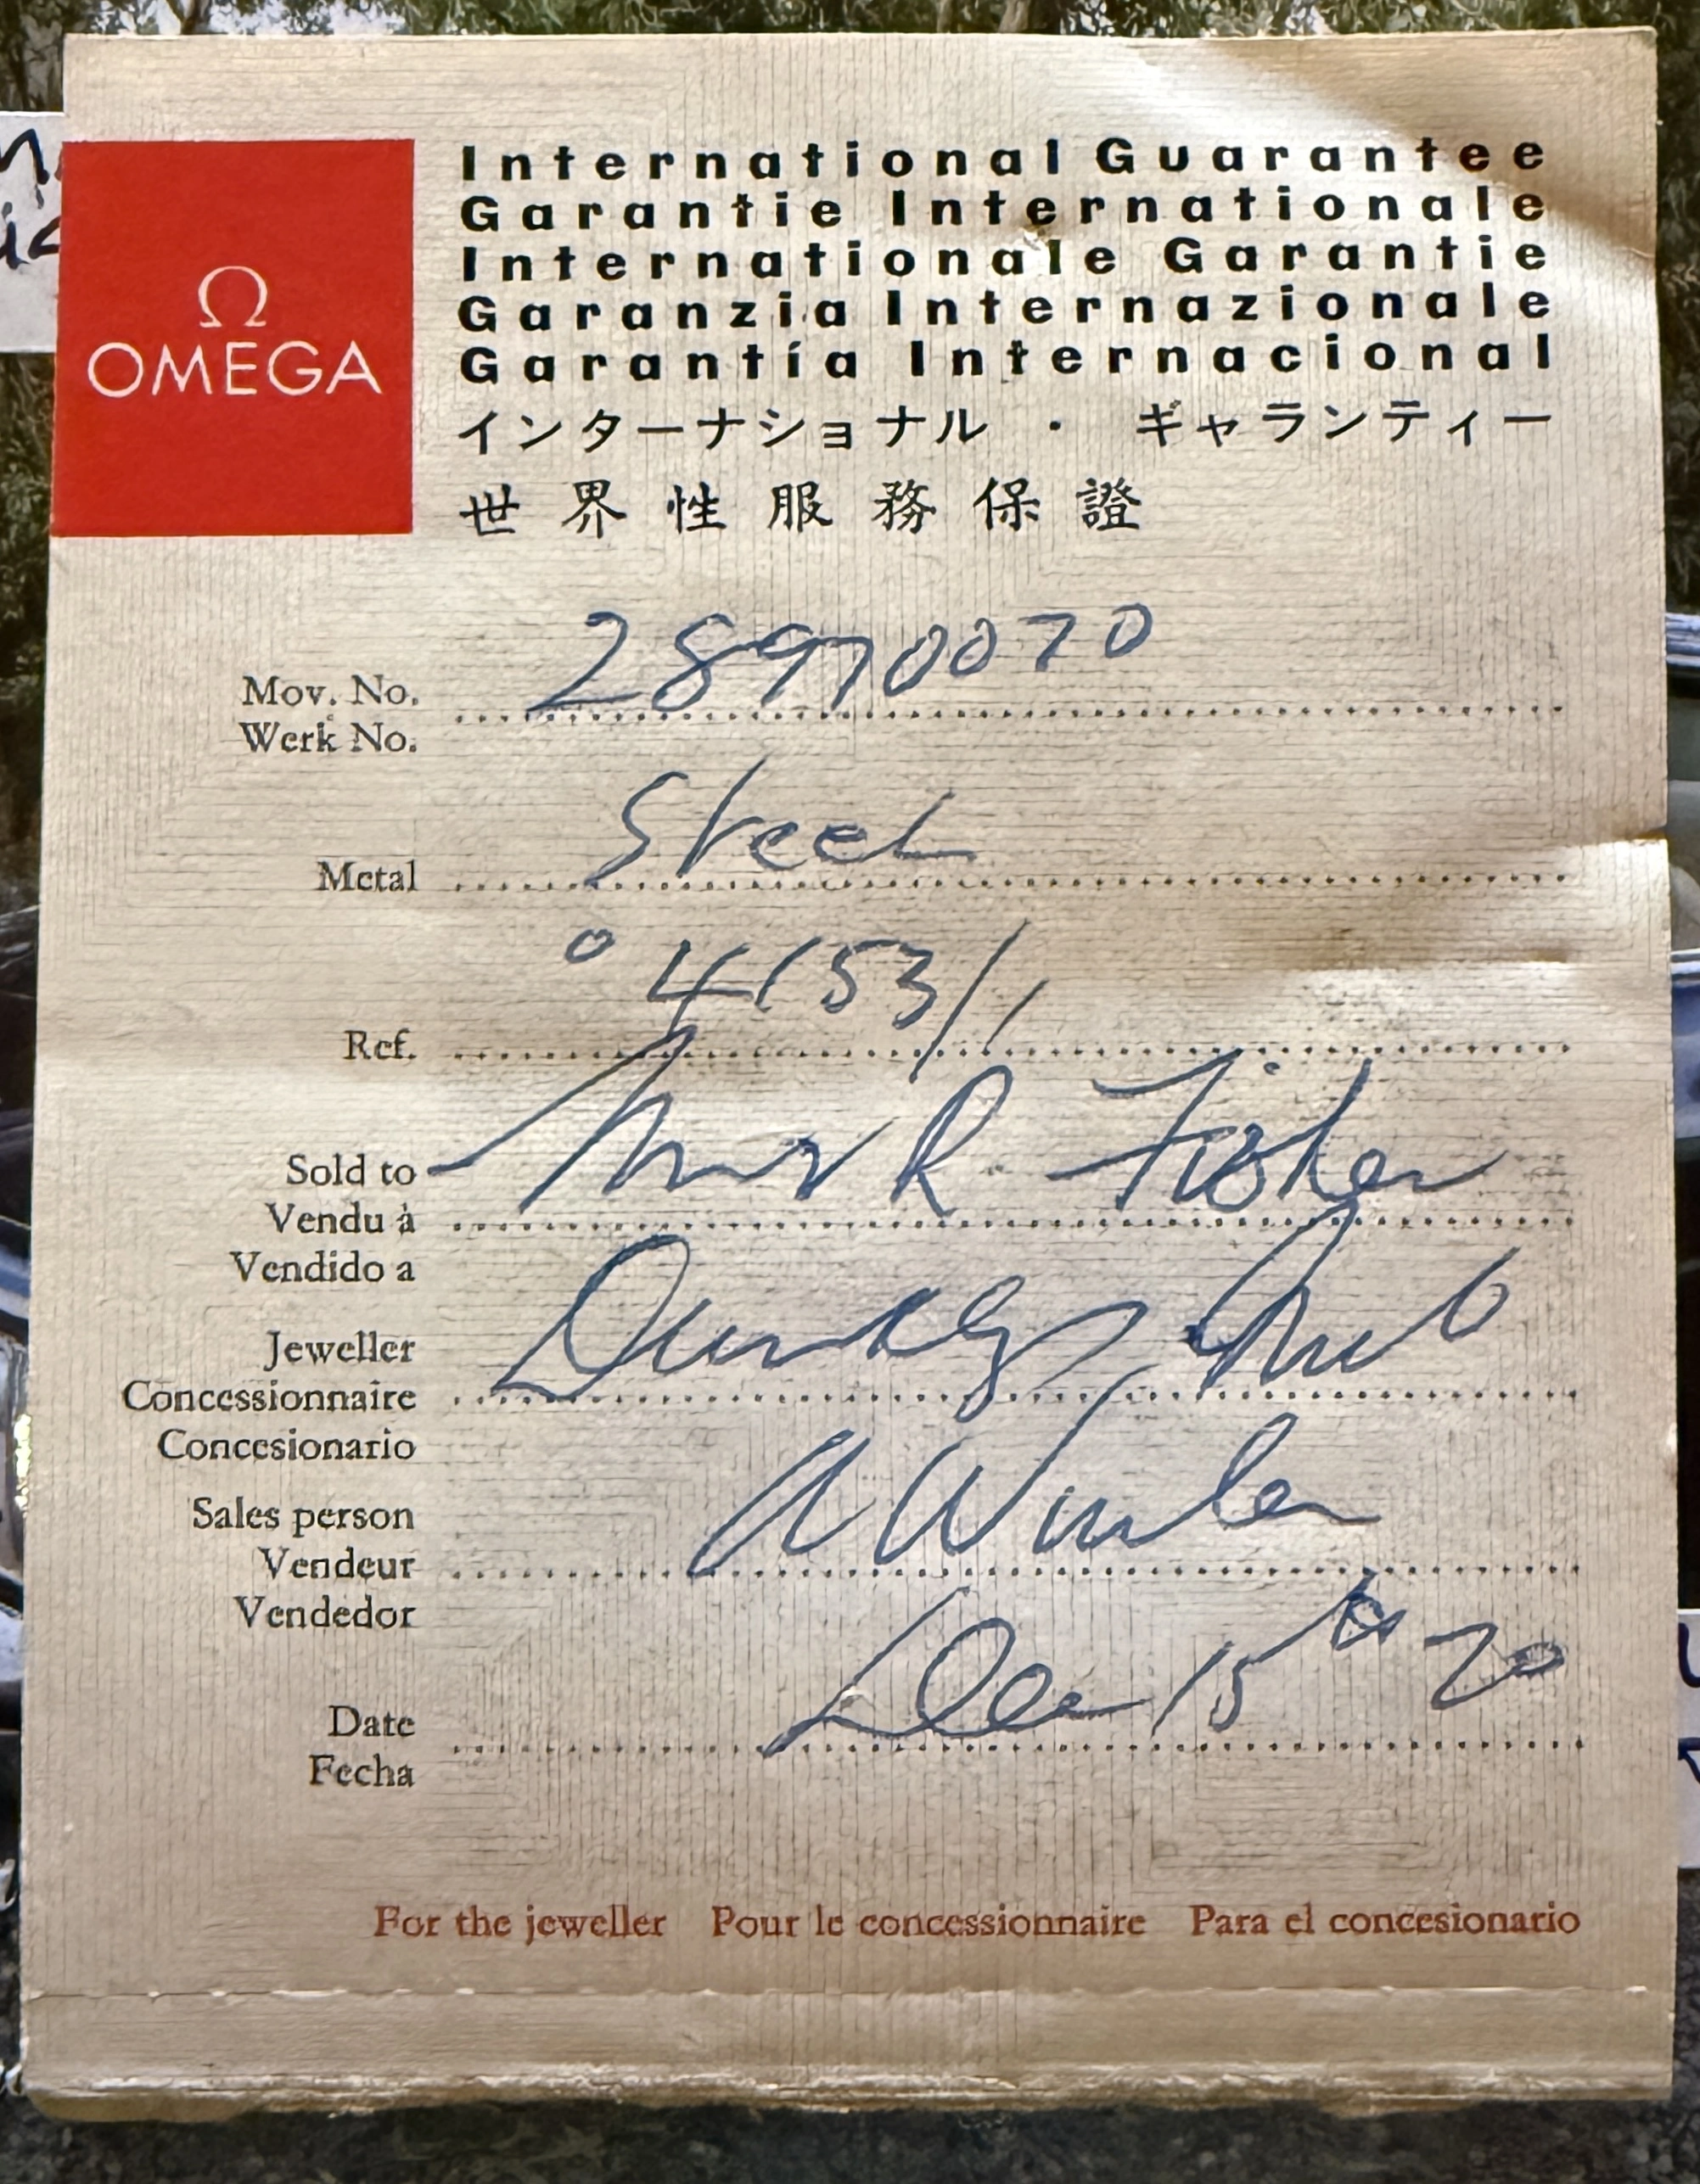 International Guarantee
Garantie Internationale
Internationale Garantie
Garanzia Internazionale
Garantía Internacional
インターナショナル・ギャランティー
世界性服務保證
Ω
OMEGA
Mov. No. 28970070
Werk No.
Metal Steel
Ref. 4153/1
Sold to Mr R Fisher
Vendu à
Vendido a
Jeweller
Concessionnaire
Concesionario
Sales person
Vendeur
Vendedor
Date Dec 15th 70
Fecha
For the jeweller Pour le concessionnaire Para el concesionario